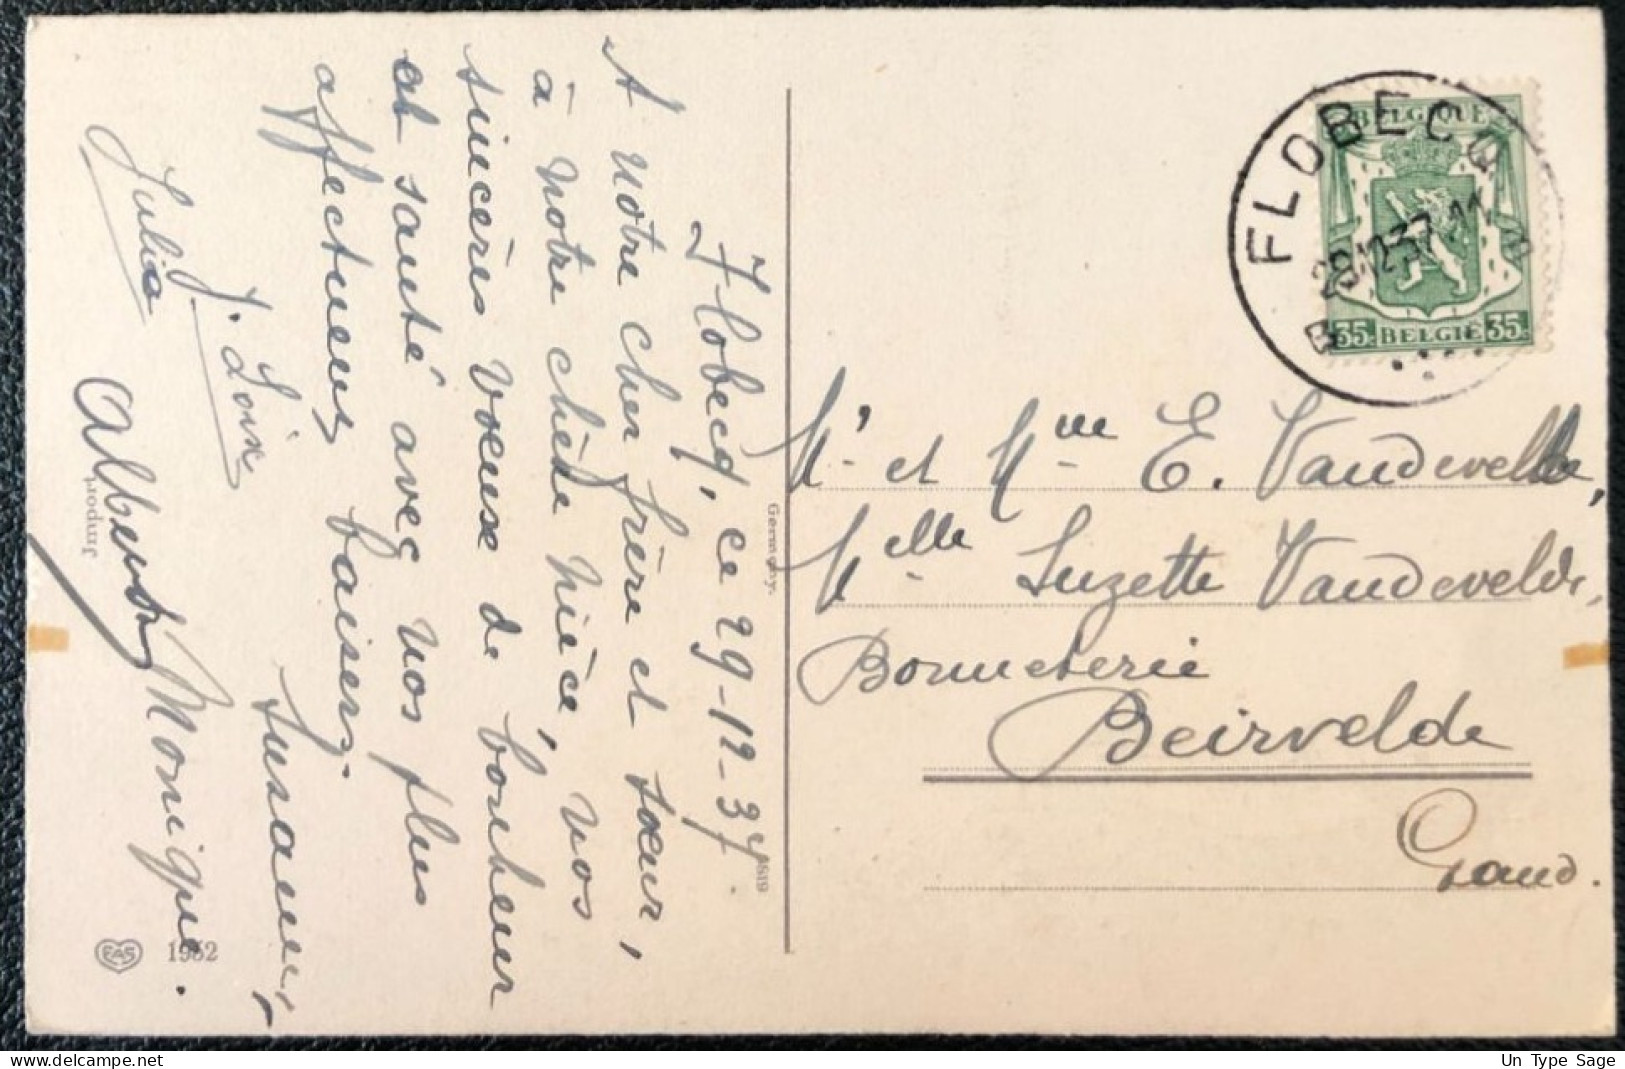 Flobecq, ce 29-12-37.
A notre cher frère et sœur,
à notre chère nièce, nos
sincères voeux de bonheur
et santé avec nos plus
affectueux baisers.
Susanne,
Julia
J. Loix
Albert
Monique.
Germany.
1819
produrf
EAS
1952
FLOBECQ
29.12.37 11
B
BELGIQUE
35c BELGIË 35c
Mr et Mme E. Vandevelde,
Melle Suzette Vandevelde,
Bonneterie
Beirvelde
Gand.
Un Type Sage